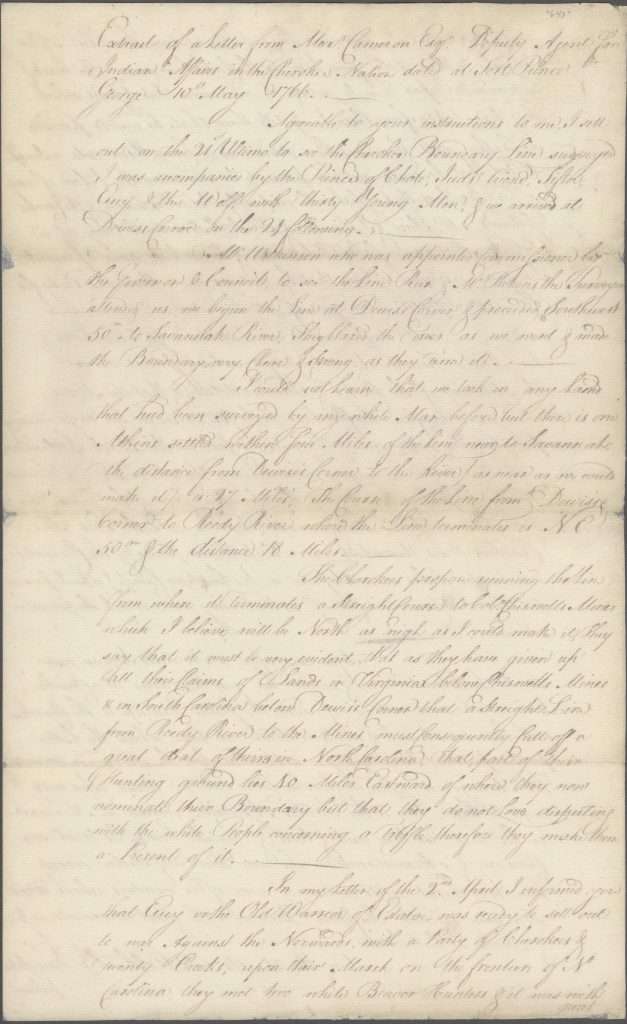 Extract of a Letter from Alexr. Cameron Esqr. Deputy Agent for
Indian Affairs in the Cherokee Nation dated at Fort Prince
George 10th May 1766.
Agreeable to your instructions to me I sett
out on the 21st Ultimo, to see the Cherokee Boundary Line surveyed
I was accompanied by the Prince of Chote, Judd's friend,
Ecuy & the Wolf with thirty Young Men, & we arrived at
Dewises Corner on the 24 following.
Mr. Wilkinson who was appointed Commissioner by
the Governor & Council, to see the Line Run, & Mr. the Surveyor
attended us, we began the Line at Dewises Corner & proceeded Southwest
50 to Savannah River, the trees as we went & made
the Boundary very Clear & Strong as they term it.
I could not learn that we took in any Lands
that had been surveyed by any white Man before but there is one
Atkins settled within four Miles of the Line near to Savannah
the distance from Dewises Corner to the River as near as we could
make it, is 27 Miles, The Course of the Line from Dewises
Corner to Reedy River where the Line terminates is N E
50 & the distance 18 Miles.
The Cherokees propose running the Line
from where it terminates a Streight Course to Colo. Chiswells Mines
which I believe will be North as nigh as I could make it, they
say that it must be very evident, that as they have given up
all their Claims of Lands in Virginia below Chiswells Mines
& in South Carolina below Dewises Corner that a Streight Line
from Reedy River to the Mines must consequently cutt off a
great deal of theirs in North Carolina, that part of their
Hunting ground lies 40 Miles Eastward of where they now
nominate their Boundary but that they do not love disputing
with the white People concerning a trifle therefore they make them
a Present of it.
In my Letter of the 2nd. April I informed you
that Ecuy or the Old Warrior of Estatoe, was ready to sett out
to war Against the with a Party of Cherokees &
twenty Creeks, upon their March on the frontiers of No.
Carolina they met two white Beaver Hunters & it was with
great